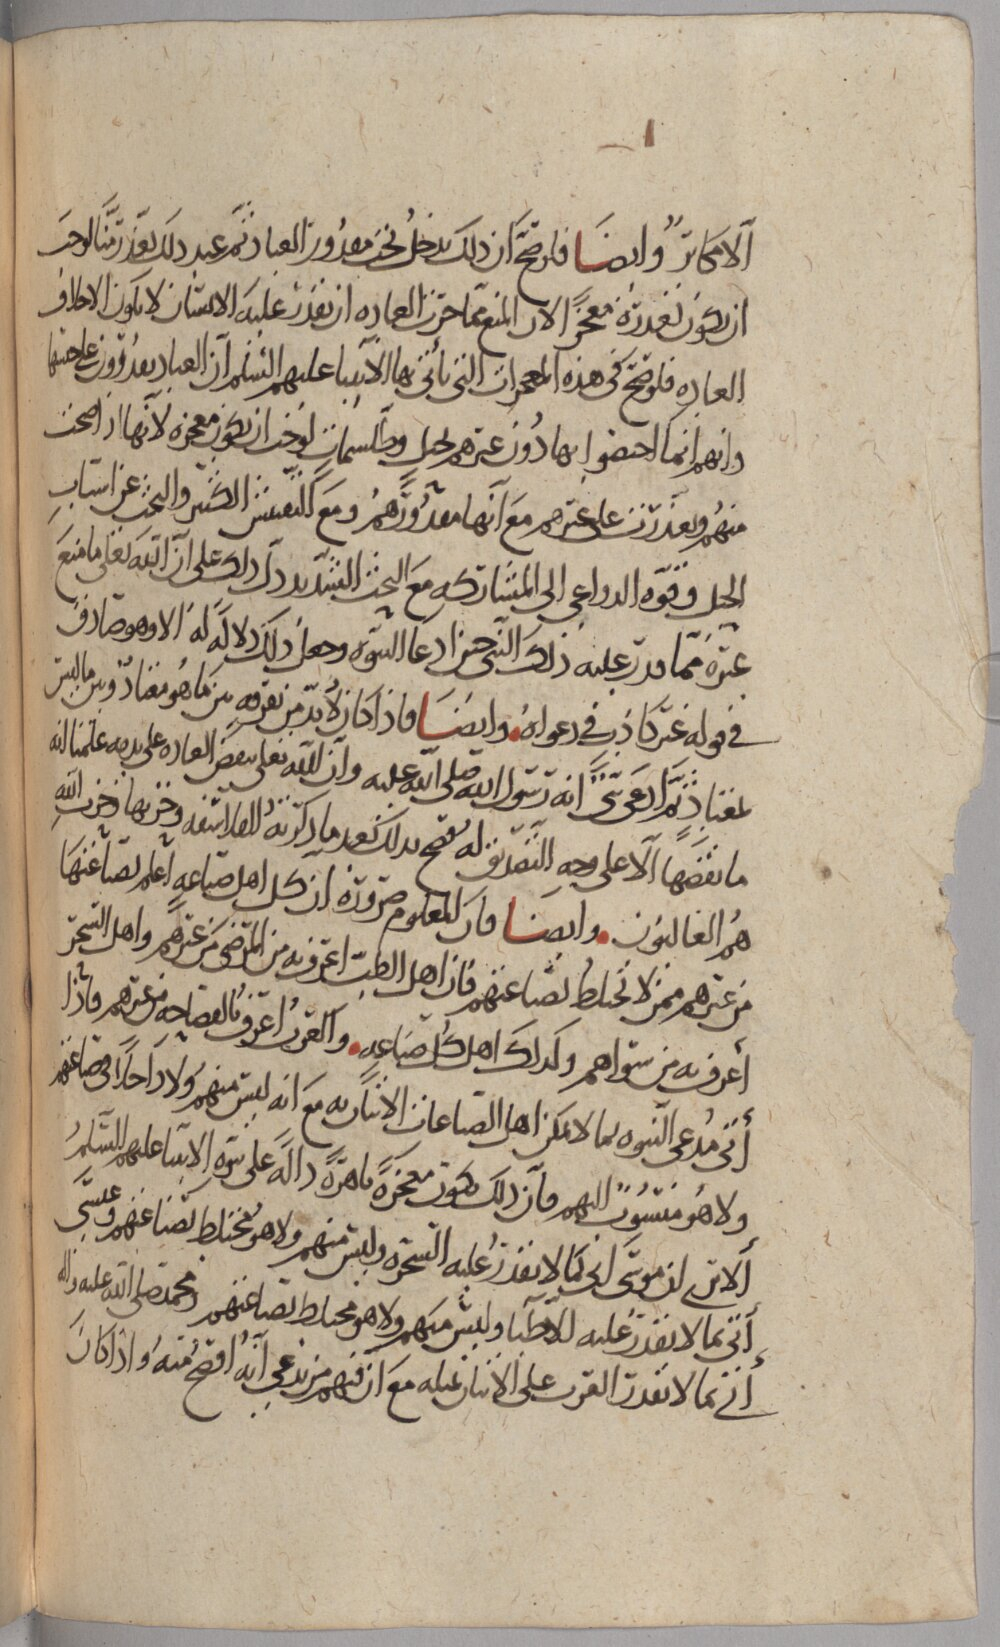 الا مكابر وايضا فلو صح ان ذلك يدخل تحت مقدور العباد ثم عند ذلك تعذر منا لوجب
ان يكون تعذره معجزا لان المنع مما جرت العاده ان يقدر عليه الانسان لا يكون الا خلاف
العاده فلو صح في هذه المعجزات التي يأتي بها الانبيا عليهم السلم ان العباد يقدرون على جنسها
وانهم انما اختصوا بها دون غيرهم لحيل وطلسمات لوجب ان يكون معجزه لأنها اذا صحت
منهم وتعذرت على غيرهم مع أنها مقدور لهم ومع التفتيش الكثير والبحث عن اسباب
الحيل وقوه الدواعي الى المشاركه مع البحث الشديد دل ذلك على ان الله تعلى ما منع
غيره مما قدر عليه ذلك النبي حين ادعا النبوه وجعل ذلك دلاله له الا وهو صادق
في قوله غير كاذب في دعواه وايضا فاذا كان لا بد من تفرقه بين ما هو معتاد وبين ما ليس
بمعتاد ثم ادعى نبي انه رسول الله صلى الله عليه وان الله تعلى ينقض العاده على يديه علمنا انه
ما نقضها الا على وجه التصديق له فصح بذلك بعد ما ذكرته الفلاسفه وحزبها وحزب الله
هم الغالبون وايضا فان المعلوم ضرورة ان كل اهل صناعه اعلم بصناعتها
من غيرهم ممن لا يختلط بصناعتهم فان اهل الطب اعرف به من المرضى من غيرهم واهل السحر
أعرف به من سواهم وكذلك اهل كل صناعه والعرب اعرف بالفصاحه من غيرهم فاذا
أتى مدعي النبوه بما لا يمكن اهل الصناعات الاتيان به مع انه ليس منهم ولا داخلا في صناعتهم
ولا هو منسوب اليهم فان ذلك يكون معجزة باهرة دالة على نبوه الانبيا عليهم السلم
ألا ترى ان موسى اتى بما لا يقدر عليه السحره وليس منهم ولا هو مختلط بصناعتهم وعيسى
أتى بما لا يقدر عليه الاطبا وليس منهم ولا هو مختلط بصناعتهم ومحمد صلى الله عليه واله
أتى بما لا يقدر العرب على الاتيان بمثله مع ان فيهم من يدعي انه افصح منه واذا كان